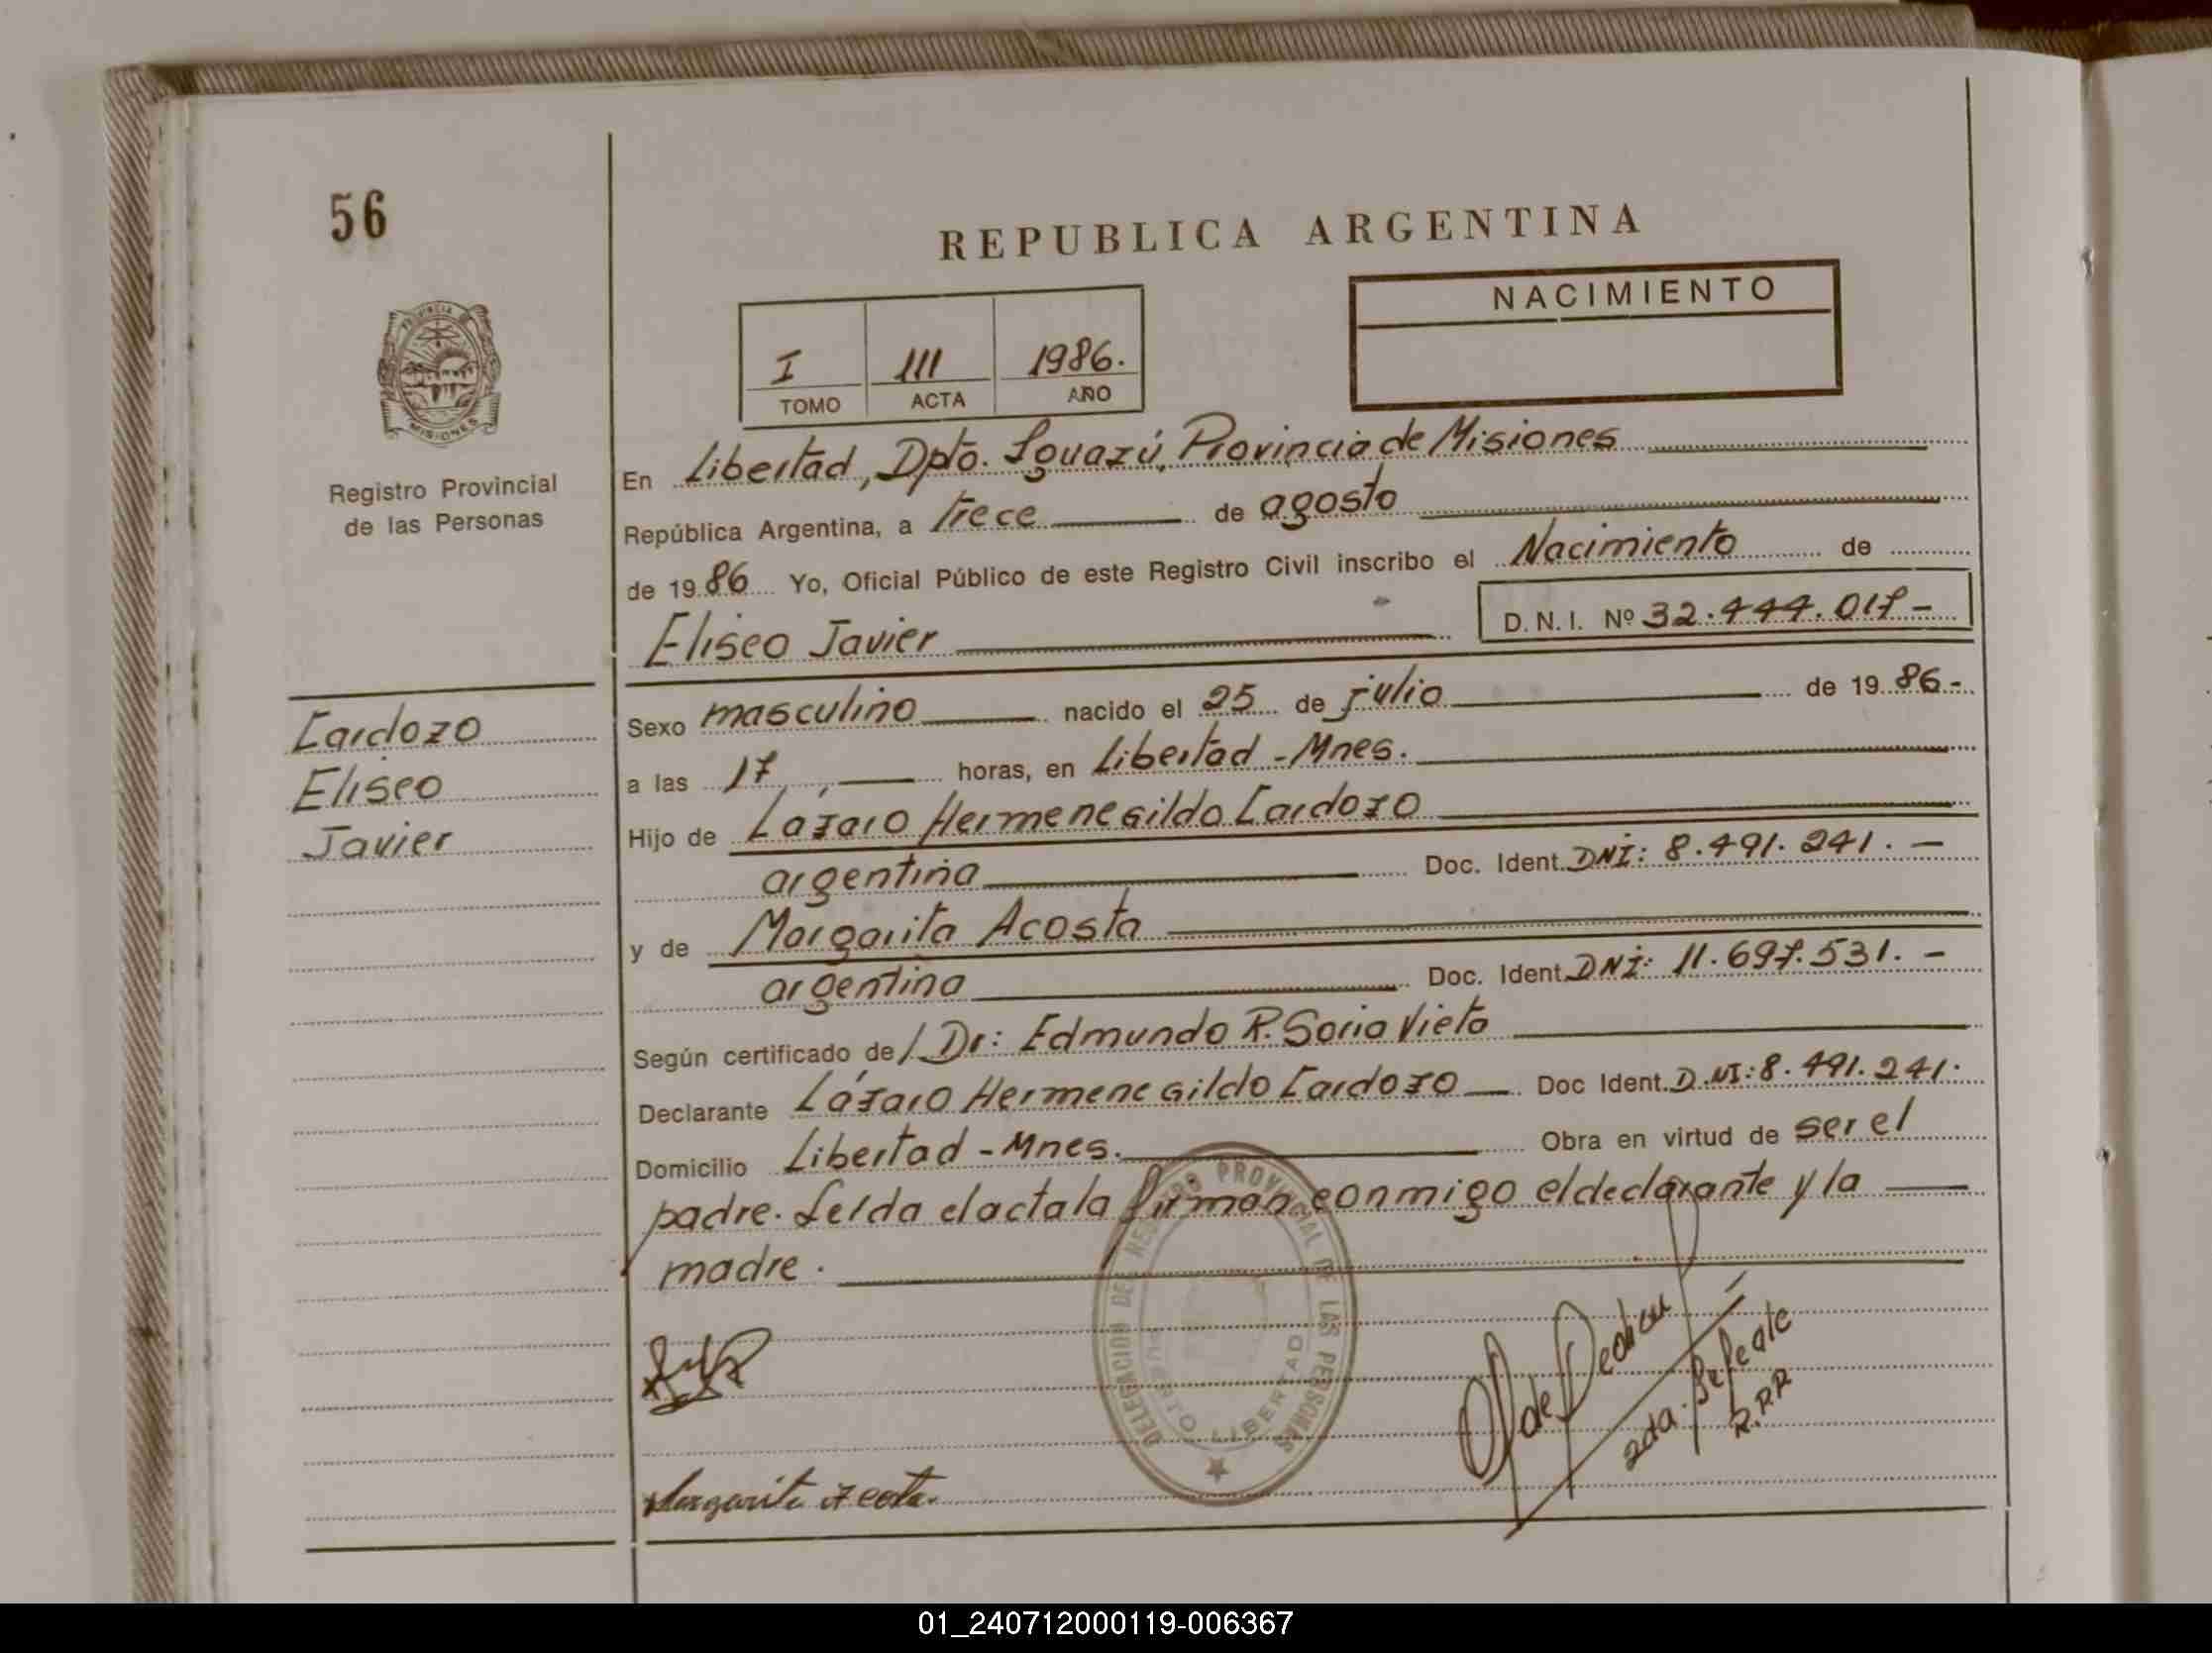 56
REPUBLICA ARGENTINA
NACIMIENTO
PROVINCIA DE
MISIONES
I 111 1986.
TOMO ACTA AÑO
Registro Provincial
de las Personas
En Libertad, Dpto. Iguazú, Provincia de Misiones
República Argentina, a Trece de agosto
de 1986 Yo, Oficial Público de este Registro Civil inscribo el Nacimiento de
Eliseo Javier D.N.I. Nº 32.444.017-
Cardozo
Eliseo
Javier
Sexo masculino nacido el 25 de julio de 1986-
a las 17, horas, en Libertad - Mnes.
Hijo de Lázaro Hermenegildo Cardozo
argentina Doc. Ident. DNI: 8.491.241. -
y de Margarita Acosta
argentina Doc. Ident. DNI: 11.697.531. -
Según certificado de / Dr: Edmundo R. Soria Vieta
Declarante Lázaro Hermenegildo Cardozo Doc Ident. D.NI: 8.491.241.
Domicilio Libertad - Mnes. Obra en virtud de ser el
padre. Leída el acta la firman conmigo el declarante y la
madre.
DELEGACION DEL REGISTRO PROVINCIAL DE LAS PERSONAS
PUERTO LIBERTAD
Margarita Acosta.
R.P.P.
01_240712000119-006367